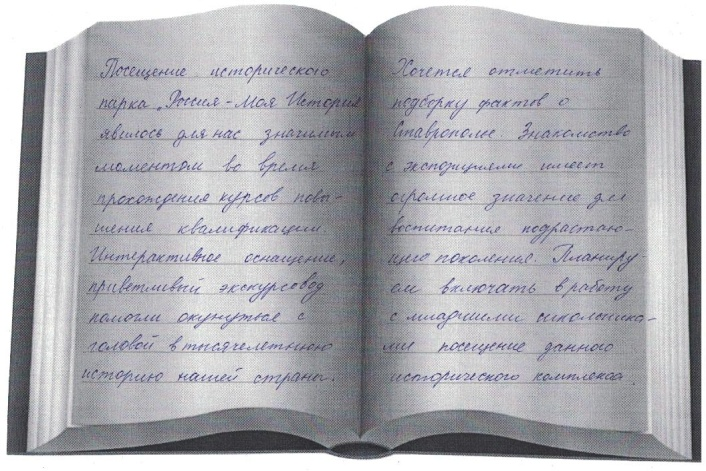 Посещение исторического
парка „Россия - Моя История
явилось для нас значимым
моментом во время
прохождения курсов повы-
шения квалификации.
Интерактивное оснащение,
приветливый экскурсовод
помогли окунуться с
головой в тысячелетнюю
историю нашей страны.
Хочется отметить
подборку фактов о
Ставрополье Знакомство
с экспозициями имеет
огромное значение для
воспитания подрастаю-
щего поколения. Планиру-
ем включать в работу
с младшими школьника-
ми посещение данного
исторического комплекса.